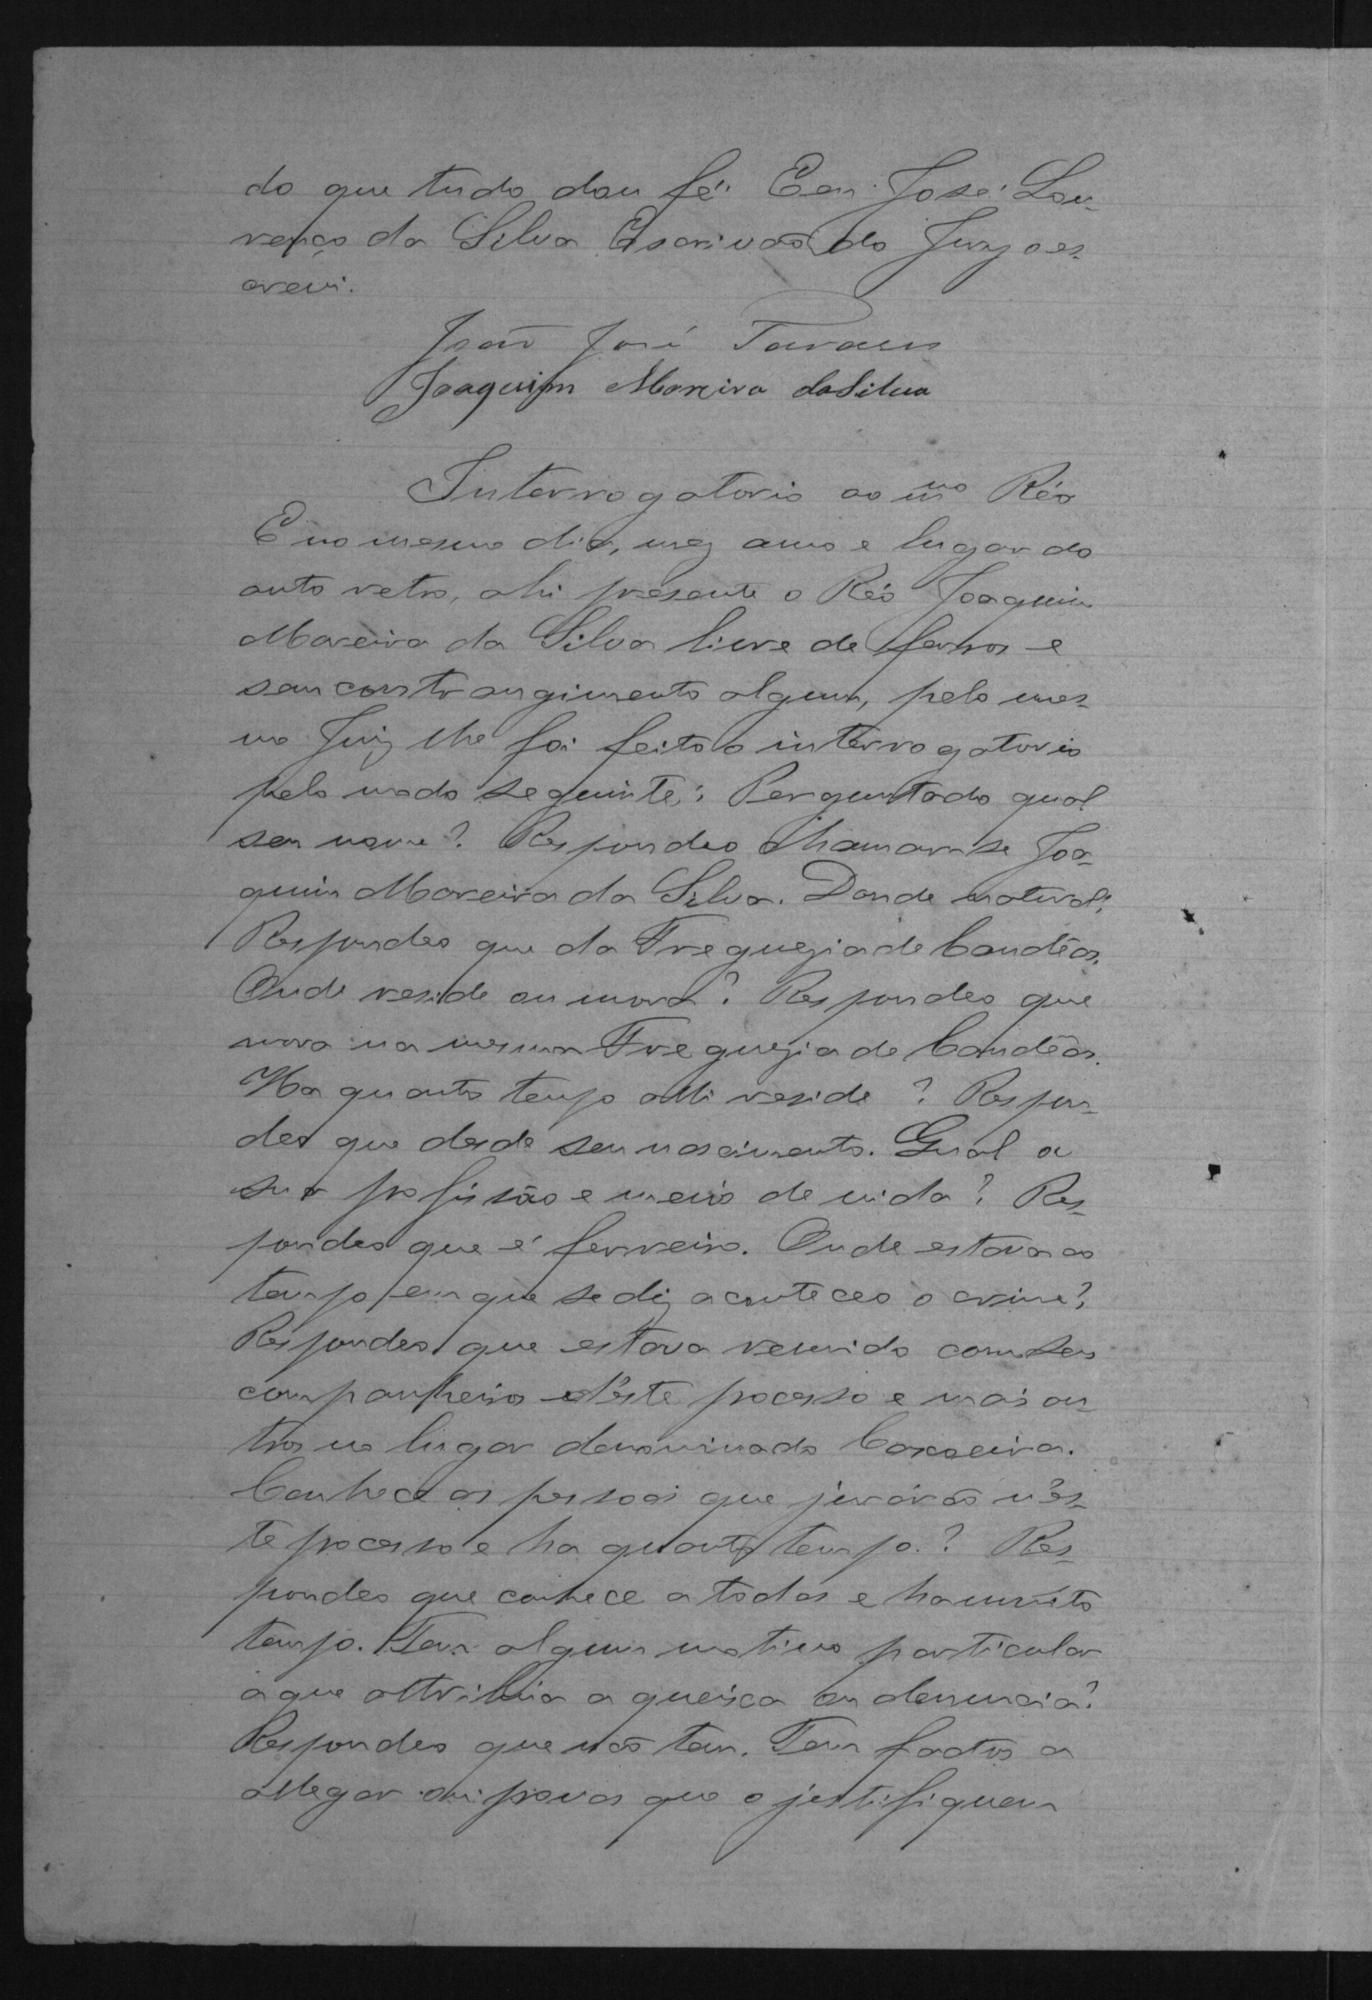 do que tudo dou fé Eu José Lou-
renço da Silva Escrivão do Jury o es-
crevi.
João José Tavares
Joaquim Moreira da Silva
Interrogatorio ao mmo Réo
E no mesmo dia, mez anno e lugar do
auto retro, ahi presente o Réo Joaquim
Moreira da Silva livre de ferros e
sem constrangimento algum, pelo mes-
mo Juiz lhe foi feito o interrogatorio
pelo modo seguinte: Perguntado qual
seu nome? Respondeo chamar-se Joa-
quim Moreira da Silva. Donde natural?
Respondeo que da Freguezia de Candêas.
Onde reside ou mora? Respondeo que
mora na mesma Freguezia de Candêas.
Ha quanto tempo alli reside? Respon-
deo que desde seu nascimento. Qual a
sua profissão e meio de vida? Res-
pondeo que é ferreiro. Onde estava ao
tempo em que se diz aconteceo o crime?
Respondeo que estava reunido com seu
companheiro d'éste pocesso e mais ou-
tros no lugar denominado Caxoeira.
Conhece as pessoas que jurárão n'és-
te pocesso e ha quanto tempo.? Res-
pondeo que conhece a todas e ha muito
tempo. Tem algum motivo particular
a que attribua a queixa ou denuncia?
Respondeo que não tem. Tem factos a
allegar ou provas que o justifiquem